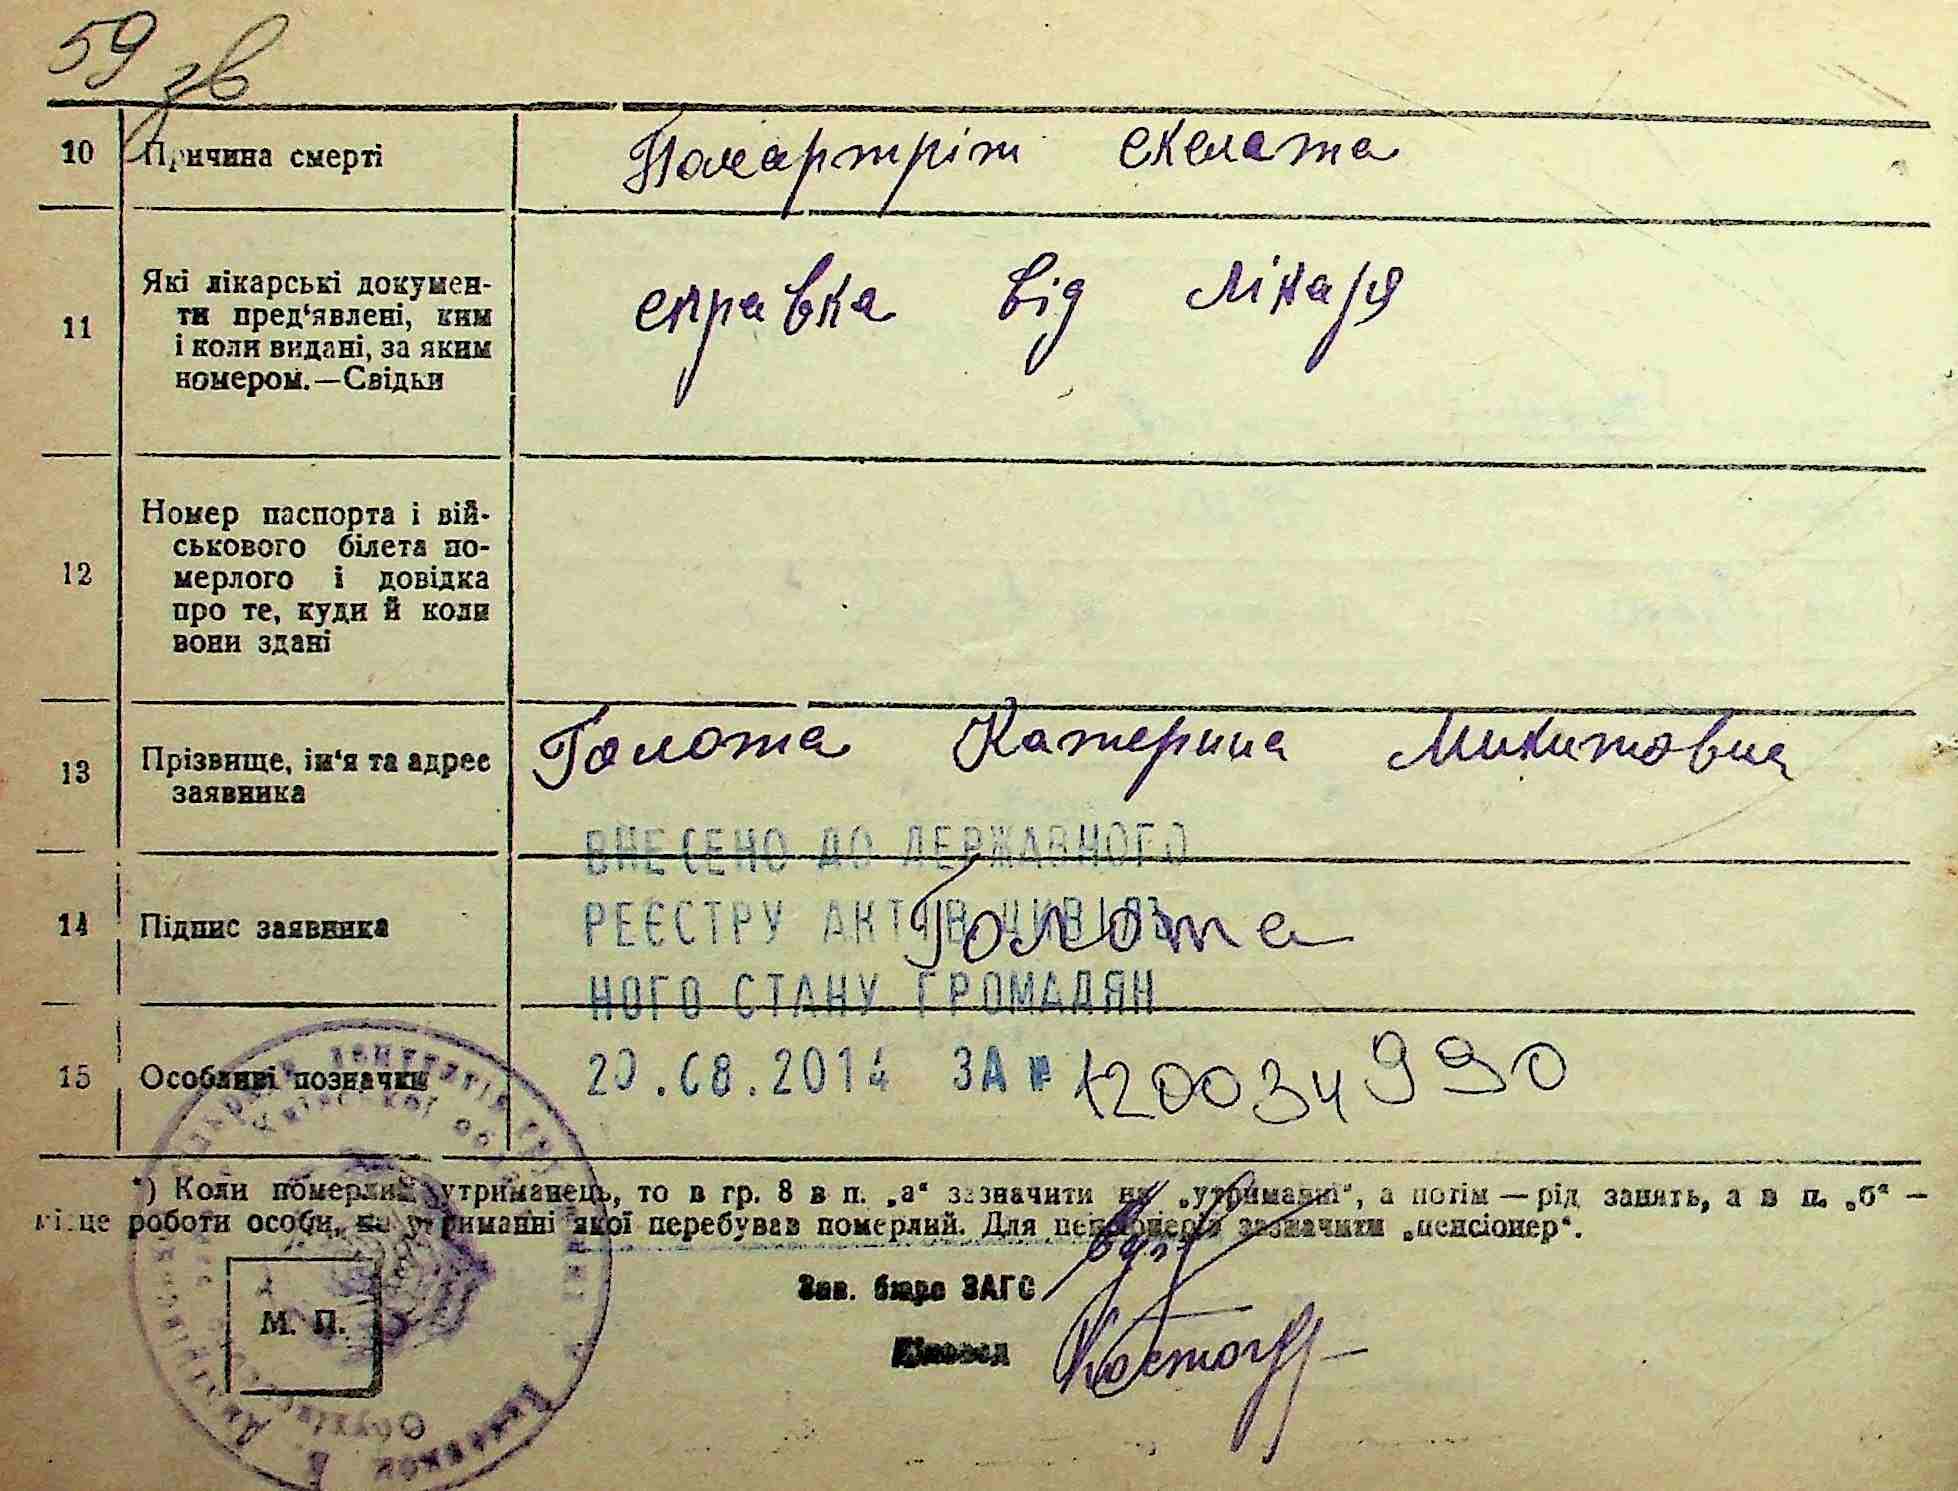 59 зв
10 Причина смерті Поліартріт скелата
11 Які лікарські докумен-
ти пред'явлені, ким
і коли видані, за яким
номером.—Свідки
справка від лікаря
12 Номер паспорта і вій-
ськового білета по-
мерлого і довідка
про те, куди й коли
вони здані
13 Прізвище, ім'я та адрес
заявника
Голота Катерина Микитовна
ВНЕСЕНО ДО ДЕРЖАВНОГО
14 Підпис заявника
РЕЄСТРУ АКТІВ ЦИВІЛЬ
Голота
НОГО СТАНУ ГРОМАДЯН
15 Особливі позначки
20.08.2014 ЗА № 120034990
*) Коли померлий утриманець, то в гр. 8 в п. „а“ зазначити на „утриманні“, а потім — рід занять, а в п. „б“ —
місце роботи особи, на утриманні якої перебував померлий. Для пенсіонерів зазначити „пенсіонер“.
Зав. бюро ЗАГС
М. П.
Діловод